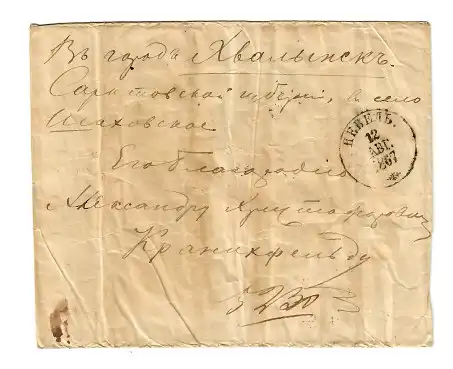 Въ городъ Хвалынскъ.
Саратовской губерніи, въ село
Исаховское
Его благородію
Александру Христофоровичу
Кранихфельду
НЕВЕЛЬ.
12
АВГ.
1867